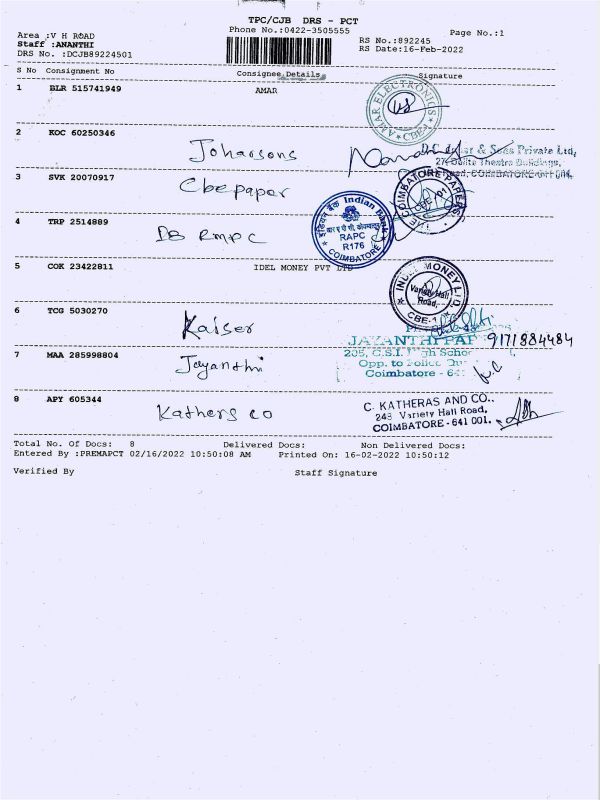 TPC/CJB DRS - PCT
Phone No.:0422-3505555
Page No.:1
Area :V H ROAD
Staff :ANANTHI
DRS No. :DCJB89224501
RS No.:892245
RS Date:16-Feb-2022
S No Consignment No Consignee Details Signature
1 BLR 515741949 AMAR
AMAR ELECTRONICS
CBE
2 KOC 60250346
Joharsons
& Sons Private Ltd,
3 SVK 20070917
Cbepaper
THE COIMBATORE PAPERS
CBE-1
4 TRP 2514889
DB RMPC
इंडियन बैंक Indian Bank
RAPC
R176
COIMBATORE
5 COK 23422811 IDEL MONEY PVT LTD
MONEY
Variety Hall
Road,
CBE-1
6 TCG 5030270
Kaiser
JAYANTHI PAP
9171884484
7 MAA 285998804
Jayanthi
205, C.S.I.
Opp. to Police
Coimbatore - 64
8 APY 605344
Kathers co
C. KATHERAS AND CO.
248 Variety Hall Road,
COIMBATORE - 641 001.
Total No. Of Docs: 8 Delivered Docs: Non Delivered Docs:
Entered By :PREMAPCT 02/16/2022 10:50:08 AM Printed On: 16-02-2022 10:50:12
Verified By Staff Signature